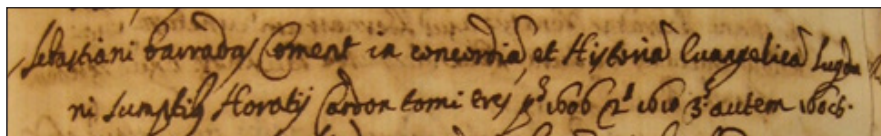 Sebastiani barradas Coment in concordiã et Hystoriã Euangelicã Lugdu
ni Sumptibꝰ Horatij Cardon tomi tres pꝰ 1606 2ꝰ 1610 3ꝰ autem